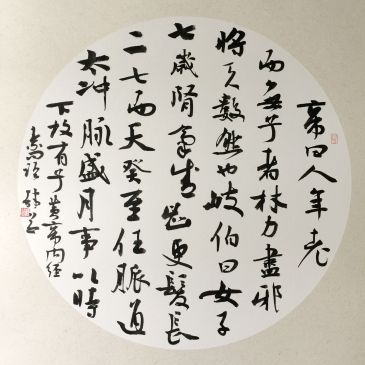 帝曰人年老
而無子者材力盡邪
將天數然也岐伯曰女子
七歲腎氣盛齒更髮長
二七而天癸至任脈通
太冲脈盛月事以時
下故有子黄帝内经